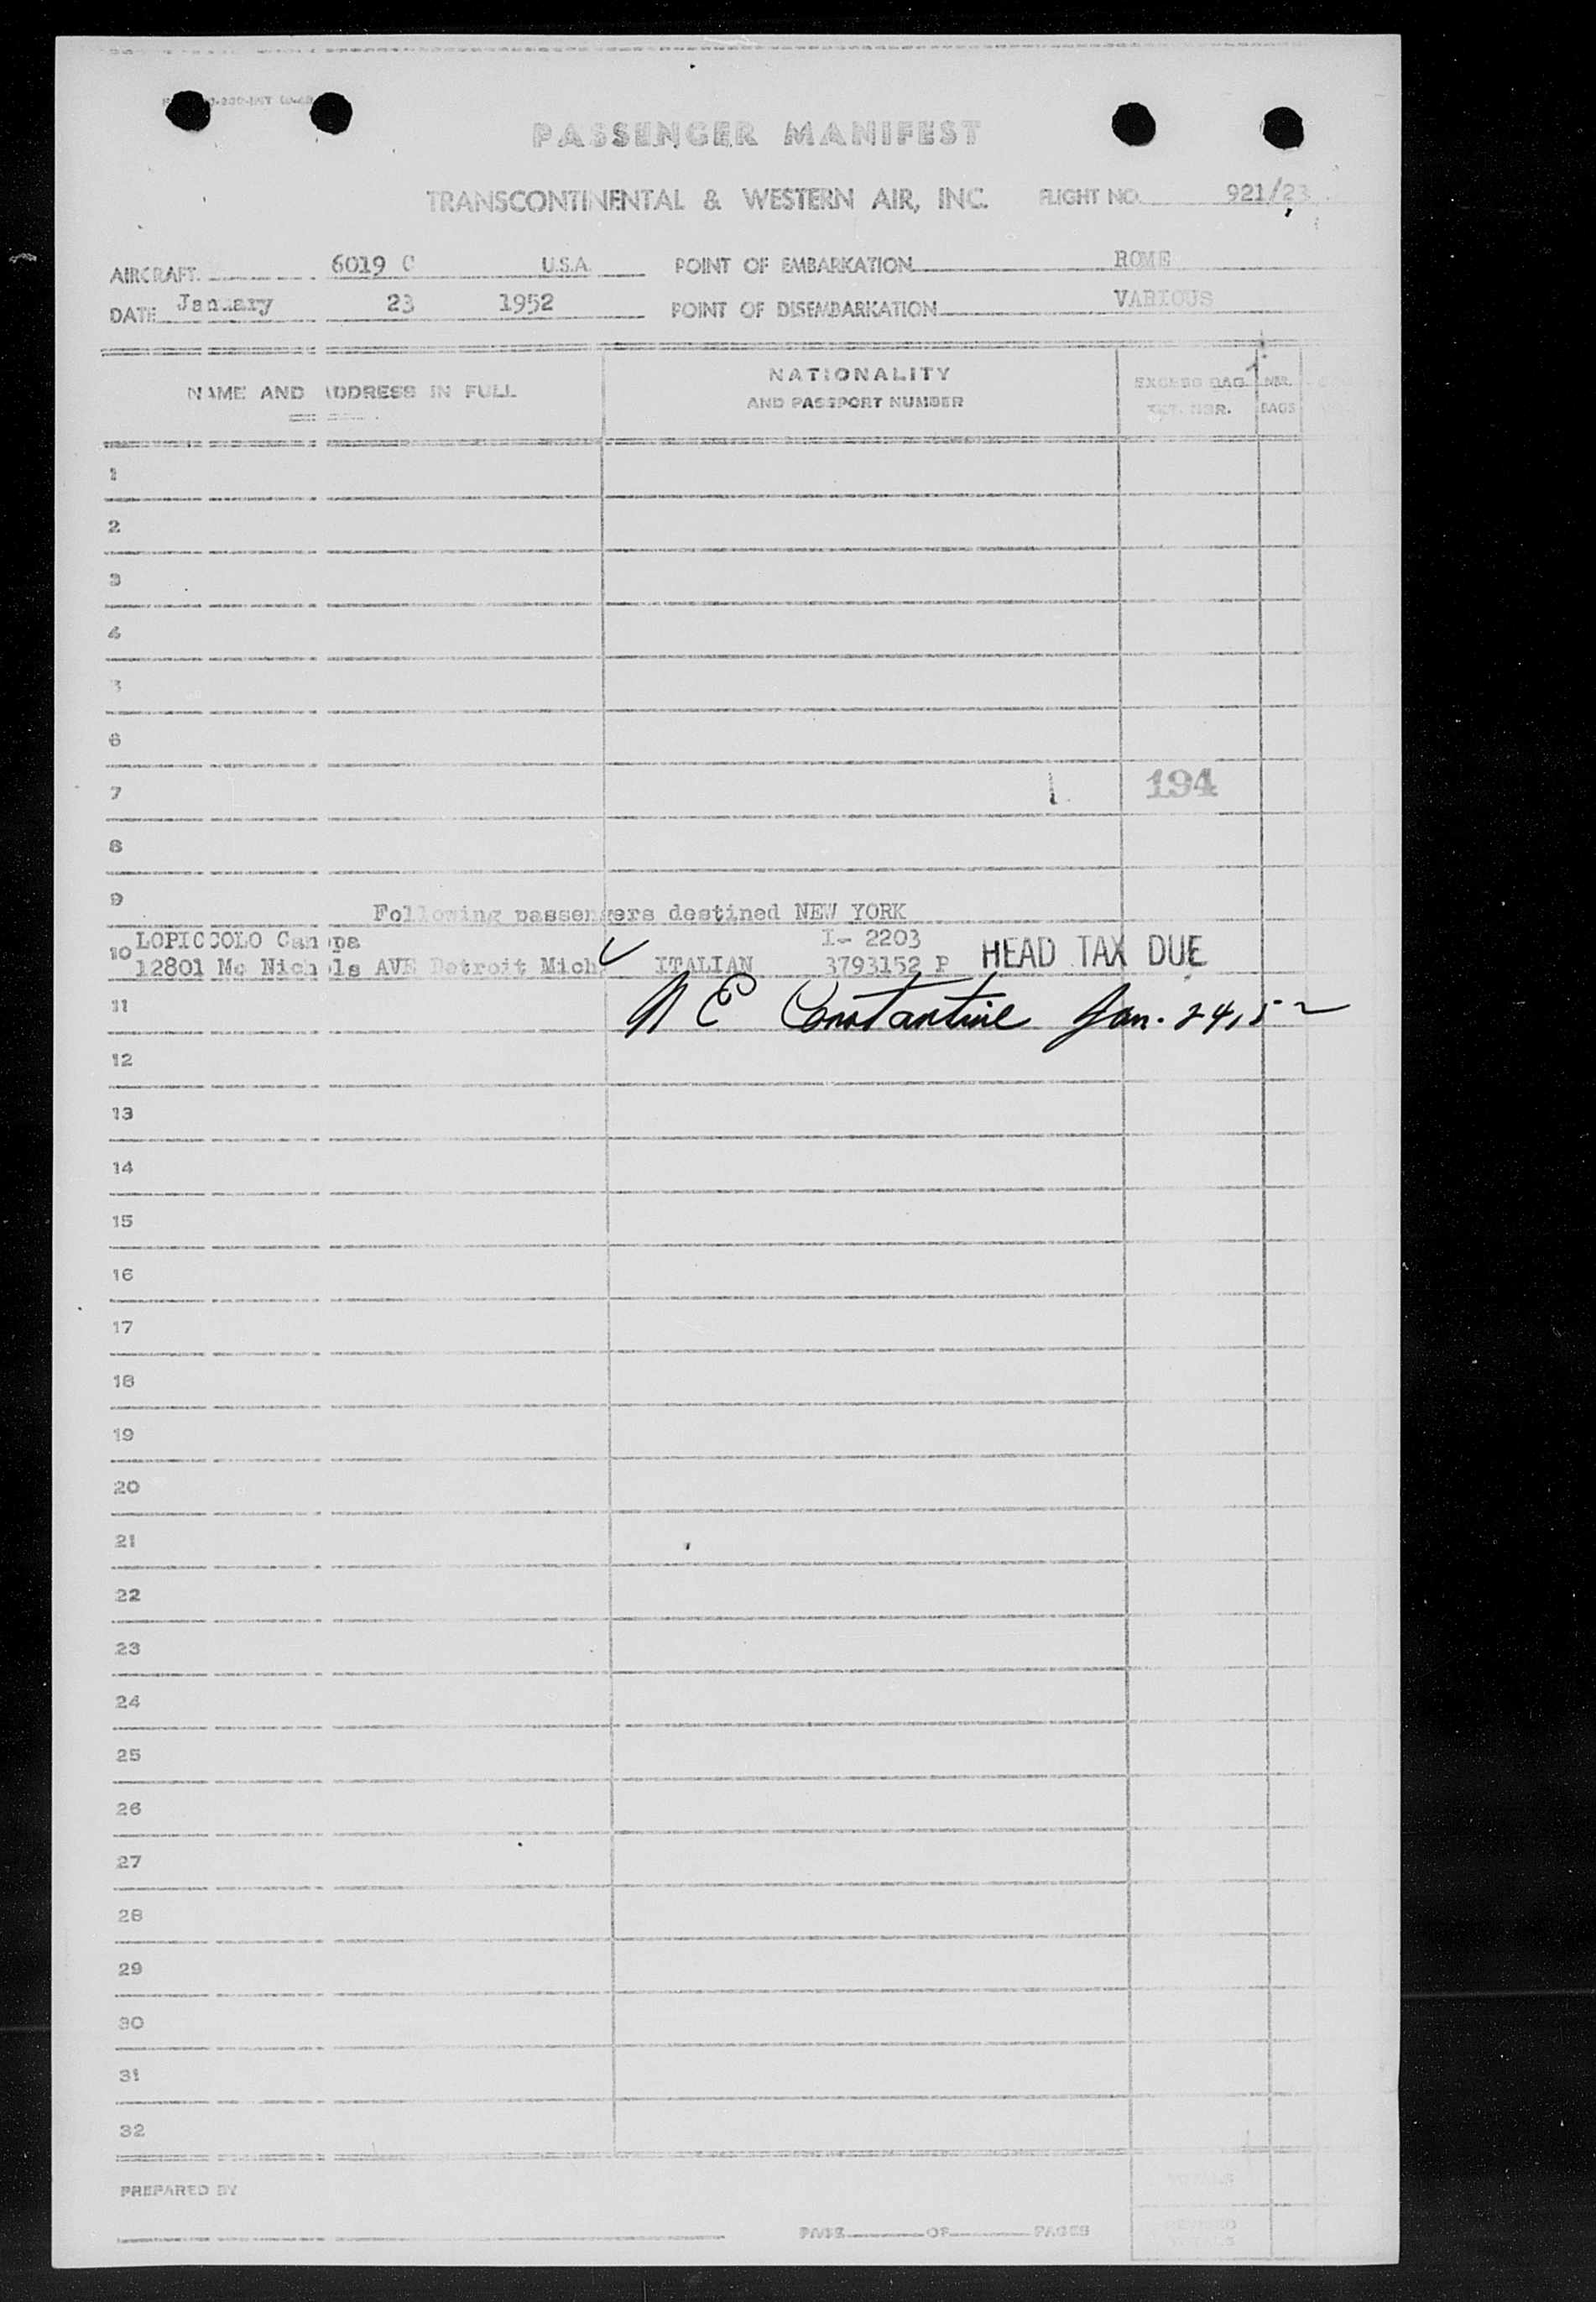 PASSENGER MANIFEST
TRANSCONTINENTAL & WESTERN AIR, INC. FLIGHT NO. 921/23
AIRCRAFT 6019 C U.S.A. POINT OF EMBARKATION ROME
DATE January 23 1952 POINT OF DISEMBARKATION VARIOUS
NAME AND ADDRESS IN FULL
NATIONALITY
AND PASSPORT NUMBER
EXCESS BAG.
TKT. NBR.
NBR.
BAGS
1
2
3
4
5
6
7 194
8
9 Following passengers destined NEW YORK
10 LOPICCOLO I- 2203
12801 Mc Nichols AVE Detroit Mich. ITALIAN 3793152 P HEAD TAX DUE
11 N E Constantine Jan. 24, 52
12
13
14
15
16
17
18
19
20
21
22
23
24
25
26
27
28
29
30
31
32
TOTALS
PREPARED BY
PAGE OF PAGES
REVISED
TOTALS